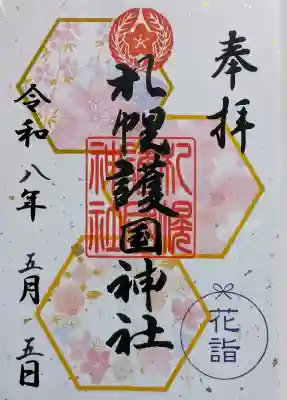 奉拝
札幌護国神社
札幌護国神社
令和八年 五月 五日
花詣